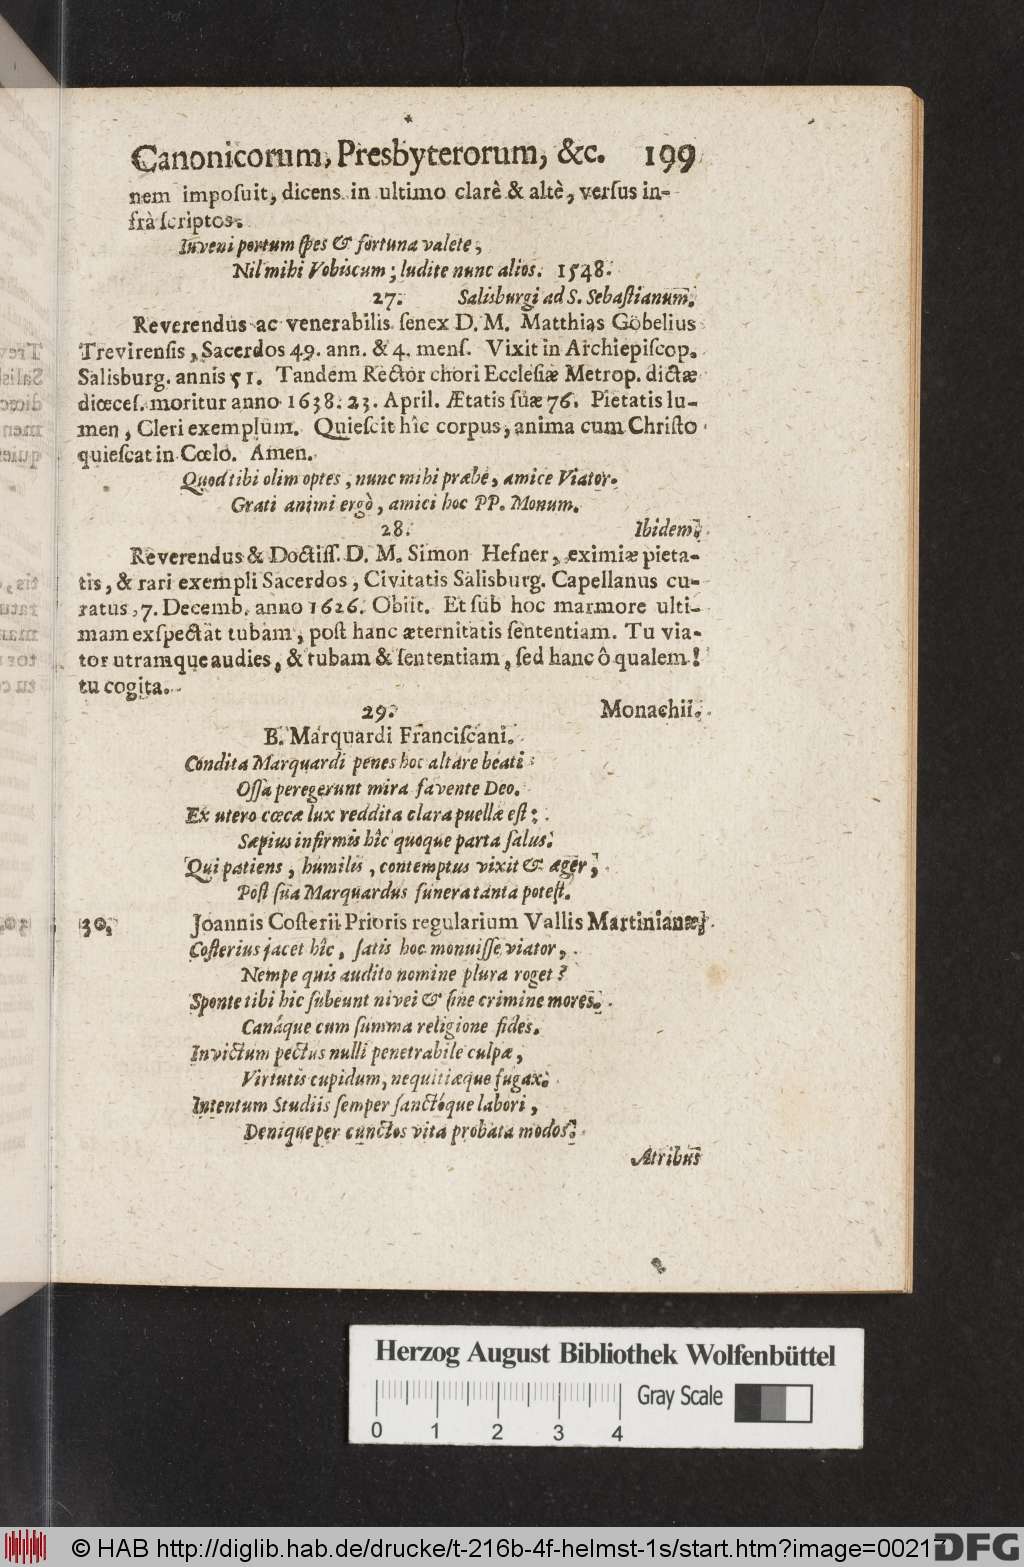 Canonicorum, Presbyterorum, &c. 199
nem imposuit, dicens in ultimo clarè & altè, versus in-
frà scriptos.
Inveni portum spes & fortuna valete,
Nil mihi Vobiscum; ludite nunc alios. 1548.
27. Salisburgi ad S. Sebastianum.
Reverendus ac venerabilis senex D. M. Matthias Göbelius
Trevirensis, Sacerdos 49. ann. & 4. mens. Vixit in Archiepiscop.
Salisburg. annis 51. Tandem Rector chori Ecclesiæ Metrop. dictæ
diœces. moritur anno 1638. 23. April. Ætatis suæ 76. Pietatis lu-
men, Cleri exemplum. Quiescit hîc corpus, anima cum Christo
quiescat in Cœlo. Amen.
Quod tibi olim optes, nunc mihi præbe, amice Viator.
Grati animi ergò, amici hoc PP. Monum.
28. Ibidem.
Reverendus & Doctiss. D. M. Simon Hefner, eximiæ pieta-
tis, & rari exempli Sacerdos, Civitatis Salisburg. Capellanus cu-
ratus, 7. Decemb. anno 1626. Obiit. Et sub hoc marmore ulti-
mam exspectat tubam, post hanc æternitatis sententiam. Tu via-
tor utramque audies, & tubam & sententiam, sed hanc ô qualem!
tu cogita.
29. Monachii.
B. Marquardi Franciscani.
Condita Marquardi penes hoc altare beati
Ossa peregerunt mira favente Deo.
Ex utero cœcæ lux reddita clara puellæ est:
Sæpius infirmis hîc quoque parta salus.
Qui patiens, humilis, contemptus vixit & æger,
Post sua Marquardus funera tanta potest.
30. Joannis Costerii Prioris regularium Vallis Martinianæ.
Costerius jacet hîc, satis hoc monuisse viator,
Nempe quis audito nomine plura roget?
Sponte tibi hic subeunt nivei & sine crimine mores.
Canáque cum summa religione fides.
Invictum pectus nulli penetrabile culpæ,
Virtutis cupidum, nequitiæque fugax.
Intentum Studiis semper sanctóque labori,
Denique per cunctos vita probata modos.
Atribus
Herzog August Bibliothek Wolfenbüttel
Gray Scale
0 1 2 3 4
© HAB http://diglib.hab.de/drucke/t-216b-4f-helmst-1s/start.htm?image=00217
DFG